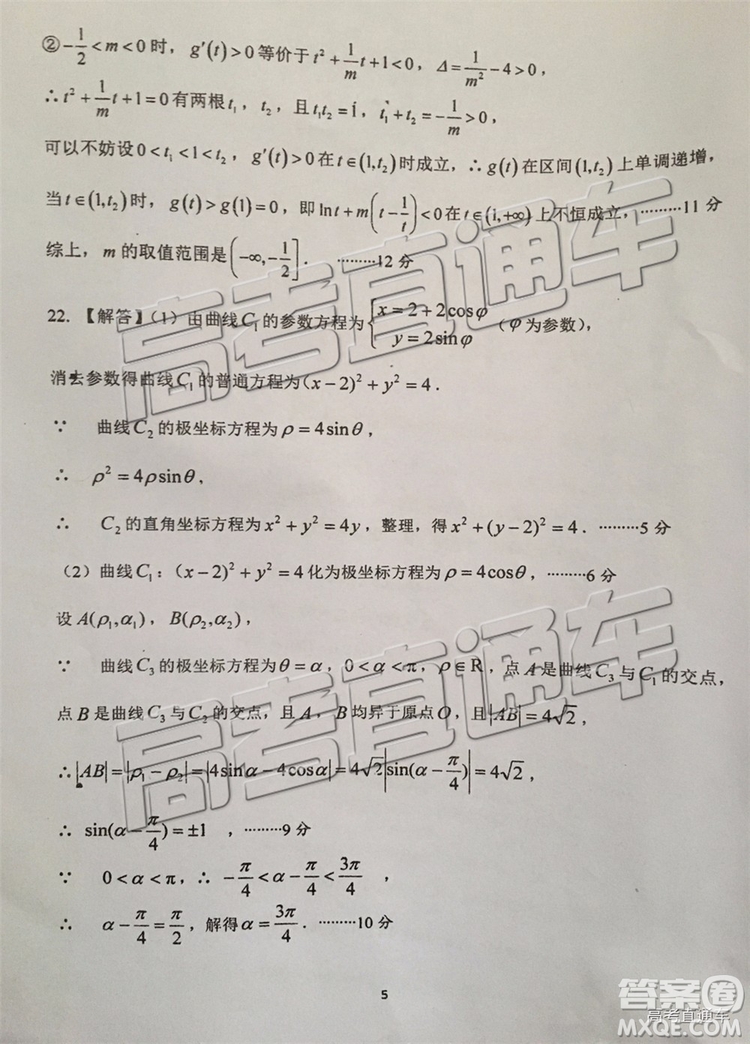 ②-1/2<m<0时，g′(t)>0等价于t²+1/m t+1<0，Δ=1/m²-4>0，
∴t²+1/m t+1=0有两根t₁，t₂，且t₁t₂=1，t₁+t₂=-1/m>0，
可以不妨设0<t₁<1<t₂，g′(t)>0在t∈(1,t₂)时成立，∴g(t)在区间(1,t₂)上单调递增，
当t∈(1,t₂)时，g(t)>g(1)=0，即lnt+m(t-1/t)<0在t∈(1,+∞)上不恒成立，………11分
综上，m的取值范围是(-∞,-1/2]．………12分
22．【解答】（1）由曲线C₁的参数方程为{x=2+2cosφ y=2sinφ（φ为参数），
消去参数得曲线C₁的普通方程为(x-2)²+y²=4．
∵ 曲线C₂的极坐标方程为ρ=4sinθ，
∴ ρ²=4ρsinθ，
∴ C₂的直角坐标方程为x²+y²=4y，整理，得x²+(y-2)²=4．………5分
（2）曲线C₁：(x-2)²+y²=4化为极坐标方程为ρ=4cosθ，………6分
设A(ρ₁,α₁)，B(ρ₂,α₂)，
∵ 曲线C₃的极坐标方程为θ=α，0<α<π，ρ∈R，点A是曲线C₃与C₁的交点，
点B是曲线C₃与C₂的交点，且A，B均异于原点O，且|AB|=4√2，
∴|AB|=|ρ₁-ρ₂|=|4sinα-4cosα|=4√2|sin(α-π/4)|=4√2，
∴ sin(α-π/4)=±1 ，………9分
∵ 0<α<π，∴ -π/4<α-π/4<3π/4 ，
∴ α-π/4=π/2，解得α=3π/4．………10分
5
高考直通车
高考直通车
答案圈
高考直通车
MXQE.COM